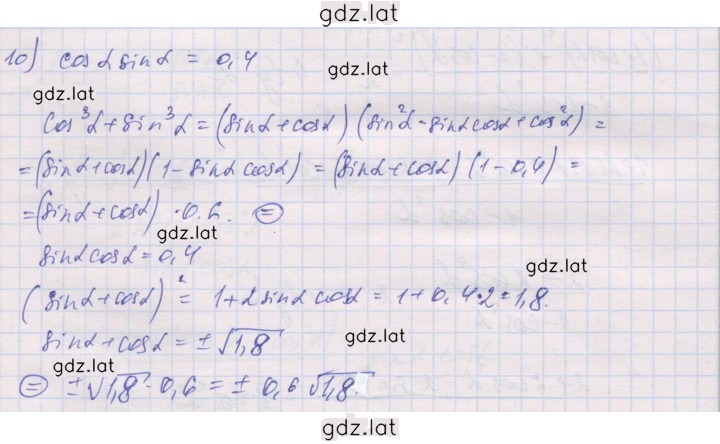 gdz.lat
10) cosα sinα = 0,4
gdz.lat
gdz.lat
cos³α + sin³α = (sinα + cosα) (sin²α - sinα cosα + cos²α) =
= (sinα + cosα) (1 - sinα cosα) = (sinα + cosα) (1 - 0,4) =
= (sinα + cosα) · 0.6. ⊜
gdz.lat
sinα cosα = 0,4
gdz.lat
(sinα + cosα)² = 1 + 2 sinα cosα = 1 + 0,4·2 = 1,8.
sinα + cosα = ± √1,8
gdz.lat
gdz.lat
⊜ ± √1,8 · 0,6 = ± 0,6 √1,8.
gdz.lat